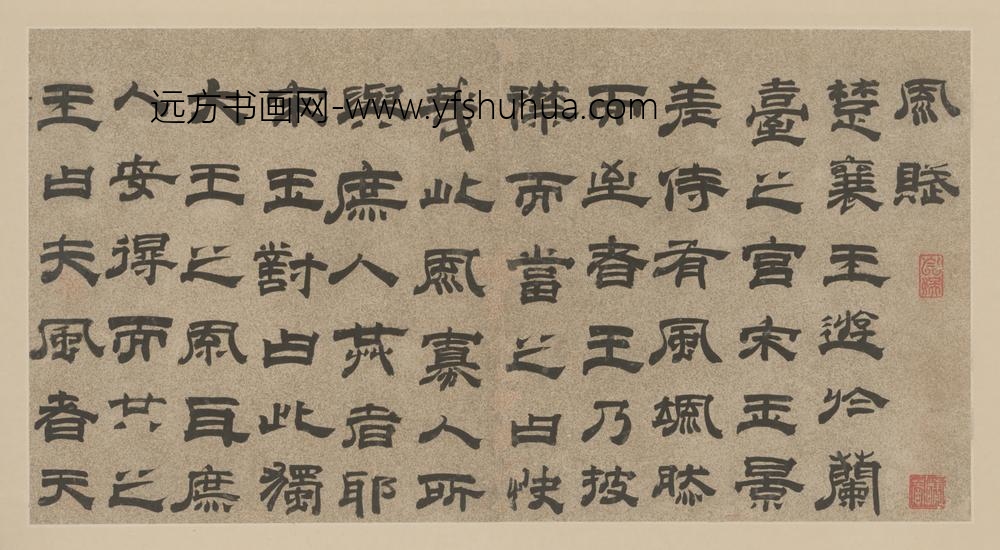 風賦
楚襄王遊於蘭
臺之宮宋玉景
差侍有風颯然
而至者王乃披
襟而當之曰快
哉此風寡人所
與庶人共者耶
宋玉對曰此獨
大王之風耳庶
人安得而共之
王曰夫風者天
远方书画网-www.yfshuhua.com